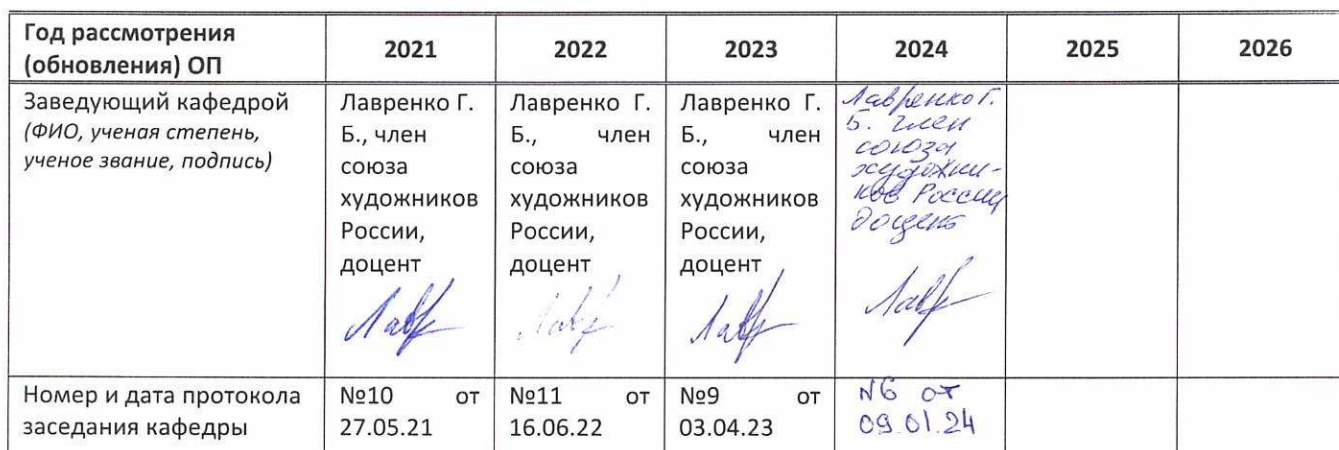 Год рассмотрения
(обновления) ОП
2021
2022
2023
2024
2025
2026
Заведующий кафедрой
(ФИО, ученая степень,
ученое звание, подпись)
Лавренко Г.
Б., член
союза
художников
России,
доцент
Лавренко Г.
Б., член
союза
художников
России,
доцент
Лавренко Г.
Б., член
союза
художников
России,
доцент
Лавренко Г.
Б. член
союза
художни-
ков России
доцент
Номер и дата протокола
заседания кафедры
№10 от
27.05.21
№11 от
16.06.22
№9 от
03.04.23
№6 от
09.01.24